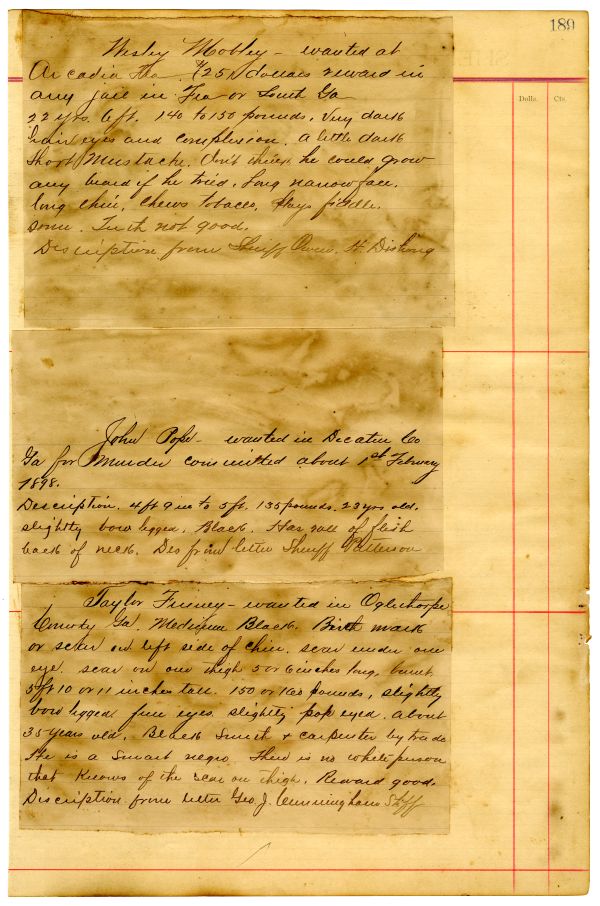 189
Dolls. Cts.
Wesley Mobley - wanted at
Arcadia Fla $25 dollars reward in
any jail in Fla or South Ga
22 yrs. 6 ft. 140 to 150 pounds, Very dark
hair eyes and complexion. a little dark
short Mustache. Don't think he could grow
any beard if he tried. Long narrow face.
long chin, Chews tobacco, Plays fiddle.
some. Teeth not good.
Discription from Sheriff Owen H. Dishong
John Pope - wanted in Decatur Co
Ga for Murder committed about 1st Febuary
1898.
Description. 4 ft 9 in to 5 ft. 135 pounds. 23 yrs old.
slightly bow legged. Black. Has roll of flesh
back of neck. Des from letter Sheriff Patterson
Taylor Finney - wanted in Oglethorpe
County Ga. Medium Black. Birth mark
or scar on left side of chin. scar under one
eye. scar on one thigh 5 or 6 inches long. burnt.
5 ft 10 or 11 inches tall. 150 or 160 pounds, slightly
bow legged full eyes slightly pop eyed. about
35 years old. Black Smith + carpenter by trade
He is a Smart negro. There is no white person
that Knows of the scar on thigh. Reward good.
Discription from letter Geo. J. Cunningham Shff